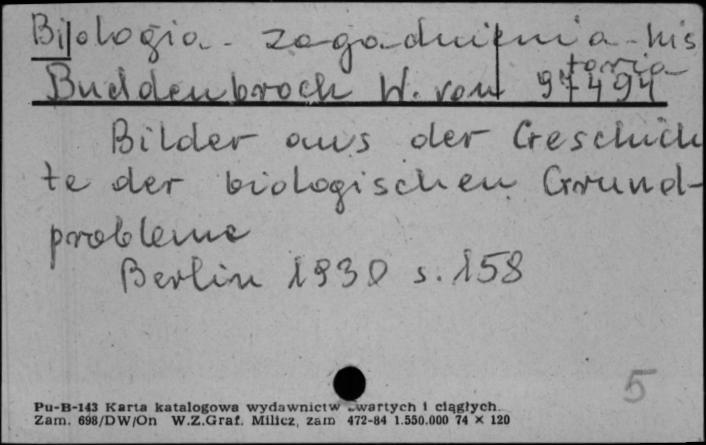 Biologia - zagadnienia - his
toria
Buddenbrock W. von 97494
Bilder aus der Geschich
te der biologischen Grund-
probleme
Berlin 1930 s. 158
5
Pu-B-143 Karta katalogowa wydawnictw zwartych i ciągłych.
Zam. 698/DW/On W.Z.Graf. Milicz, zam 472-84 1.550.000 74 × 120